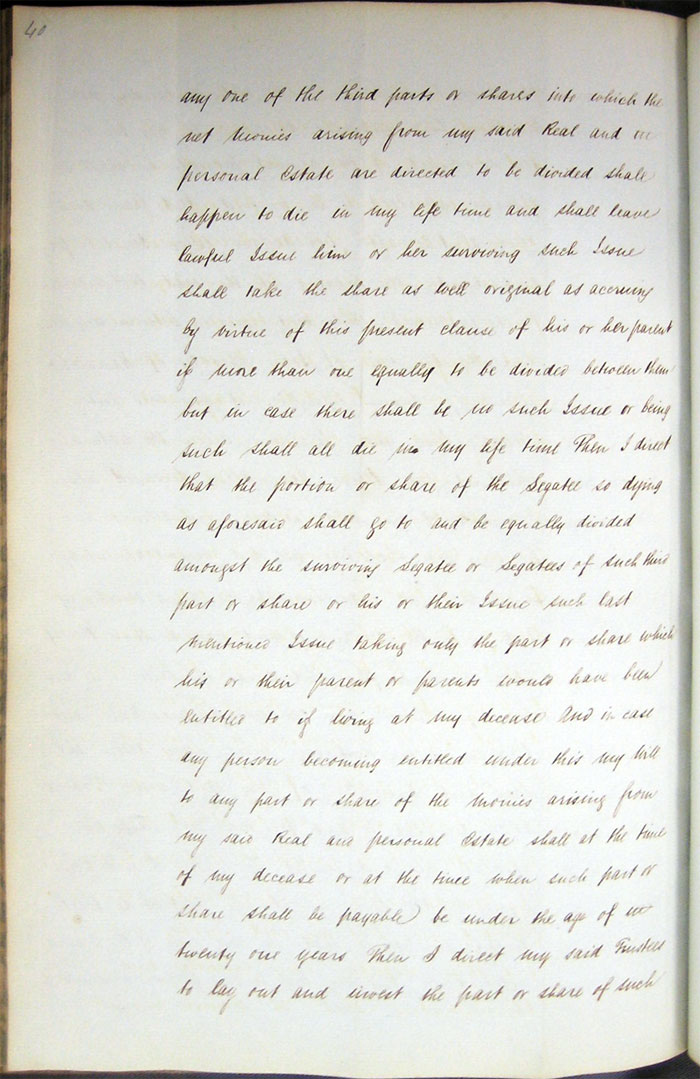 40
any one of the third parts or shares into which the
net Monies arising from my said Real and
personal Estate are directed to be divided shall
happen to die in my life time and shall leave
lawful Issue him or her surviving such Issue
shall take the share as well original as accruing
by virtue of this present clause of his or her parent
if more than one equally to be divided between them
but in case there shall be no such Issue or being
such shall all die in my life time Then I direct
that the portion or share of the Legatee so dying
as aforesaid shall go to and be equally divided
amongst the surviving Legatee or Legatees of such third
part or share or his or their Issue such last
mentioned Issue taking only the part or share which
his or their parent or parents would have been
entitled to if living at my decease And in case
any person becoming entitled under this my Will
to any part or share of the Monies arising from
my said Real and personal Estate shall at the time
of my decease or at the time when such part or
share shall be payable be under the age of
twenty one years Then I direct my said Trustees
to lay out and invest the part or share of such